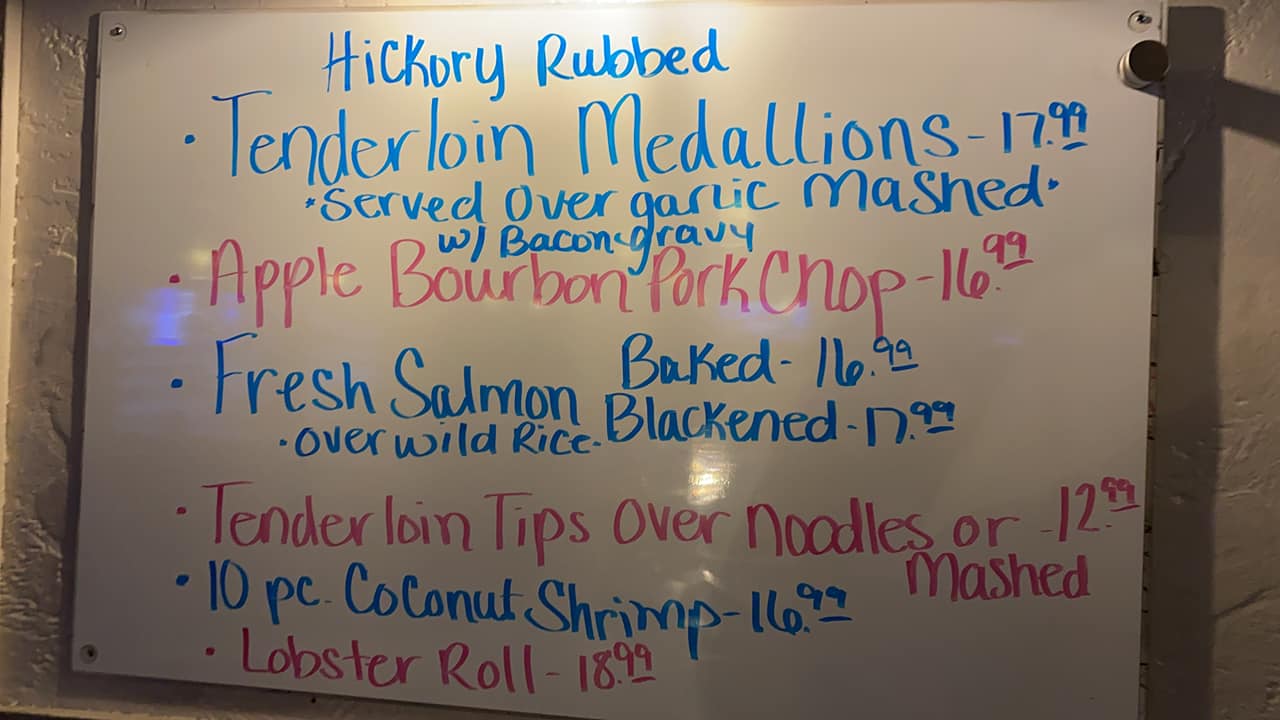 Hickory Rubbed
• Tenderloin Medallions - 17.99
*Served Over garlic Mashed*
w/ Bacon gravy
• Apple Bourbon Pork Chop - 16.99
• Fresh Salmon Baked - 16.99
• over wild Rice. Blackened - 17.99
• Tenderloin Tips Over noodles or - 12.99
Mashed
• 10 pc. Coconut Shrimp - 16.99
• Lobster Roll - 18.99